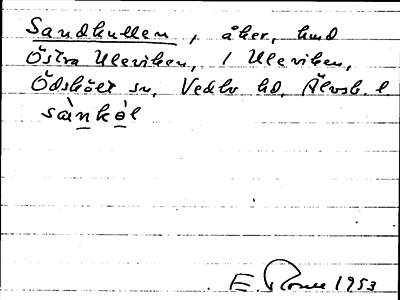 Sandkullen, åker, hmd
Östra Uleviken, 1 Uleviken,
Ödskölt sn, Vedbo hd, Älvsb. l
sànkə̀l
E 1953